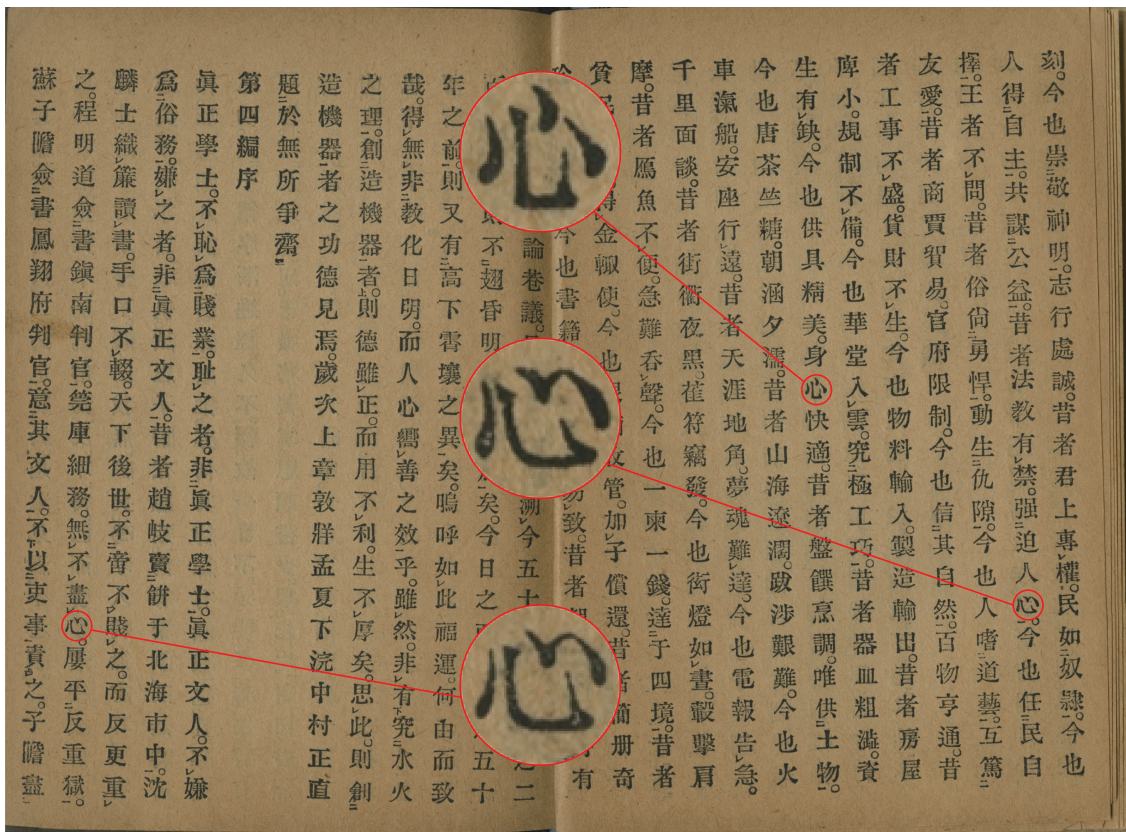 刻。今也崇敬神明。志行處誠。昔者君上專權。民如奴隷。今也
人得自主。共謀公益。昔者法教有禁。强迫人心。今也任民自
擇。王者不問。昔者俗尚勇悍。動生仇隙。今也人嗜道藝。互篤
友愛。昔者商賈貿易。官府限制。今也信其自然。百物亨通。昔
者工事不盛。貨財不生。今也物料輸入。製造輸出。昔者房屋
庳小。規制不備。今也華堂入雲。究極工巧。昔者器皿粗澁。資
生有缺。今也供具精美。身心快適。昔者盤饌烹調。唯供土物。
今也唐茶竺糖。朝涵夕濡。昔者山海遼濶。跋涉艱難。今也火
車滊船。安座行遠。昔者天涯地角。夢魂難達。今也電報告急。
千里面談。昔者街衢夜黑。萑苻竊發。今也街燈如晝。轂擊肩
摩。昔者鴈魚不便。急難呑聲。今也一柬一錢。達于四境。昔者
貧民得金輙使。今也管。加子償還。昔者簡册奇
今也書籍易致。昔者有
論巻議。溯今五十之二
則不翅昏明矣。今日之五十
年之前。則又有高下霄壤之異矣。嗚呼如此福運。何由而致
哉。得無非教化日明。而人心嚮善之效乎。雖然。非有究水火
之理。創造機器者。則德雖正。而用不利。生不厚矣。思此。則創
造機器者之功德見焉。歲次上章敦牂孟夏下浣中村正直
題於無所爭齋
第四編序
眞正學士。不恥爲賤業。耻之者。非眞正學士。眞正文人。不嫌
爲俗務。嫌之者。非眞正文人。昔者趙岐賣餅于北海市中。沈
麟士織簾讀書。手口不輟。天下後世。不啻不賤之。而反更重
之。程明道僉書鎭南判官。筦庫細務。無不盡心。屢平反重獄。
蘇子瞻僉書鳳翔府判官。意其文人。不以吏事責之。子瞻盡
心
心
心